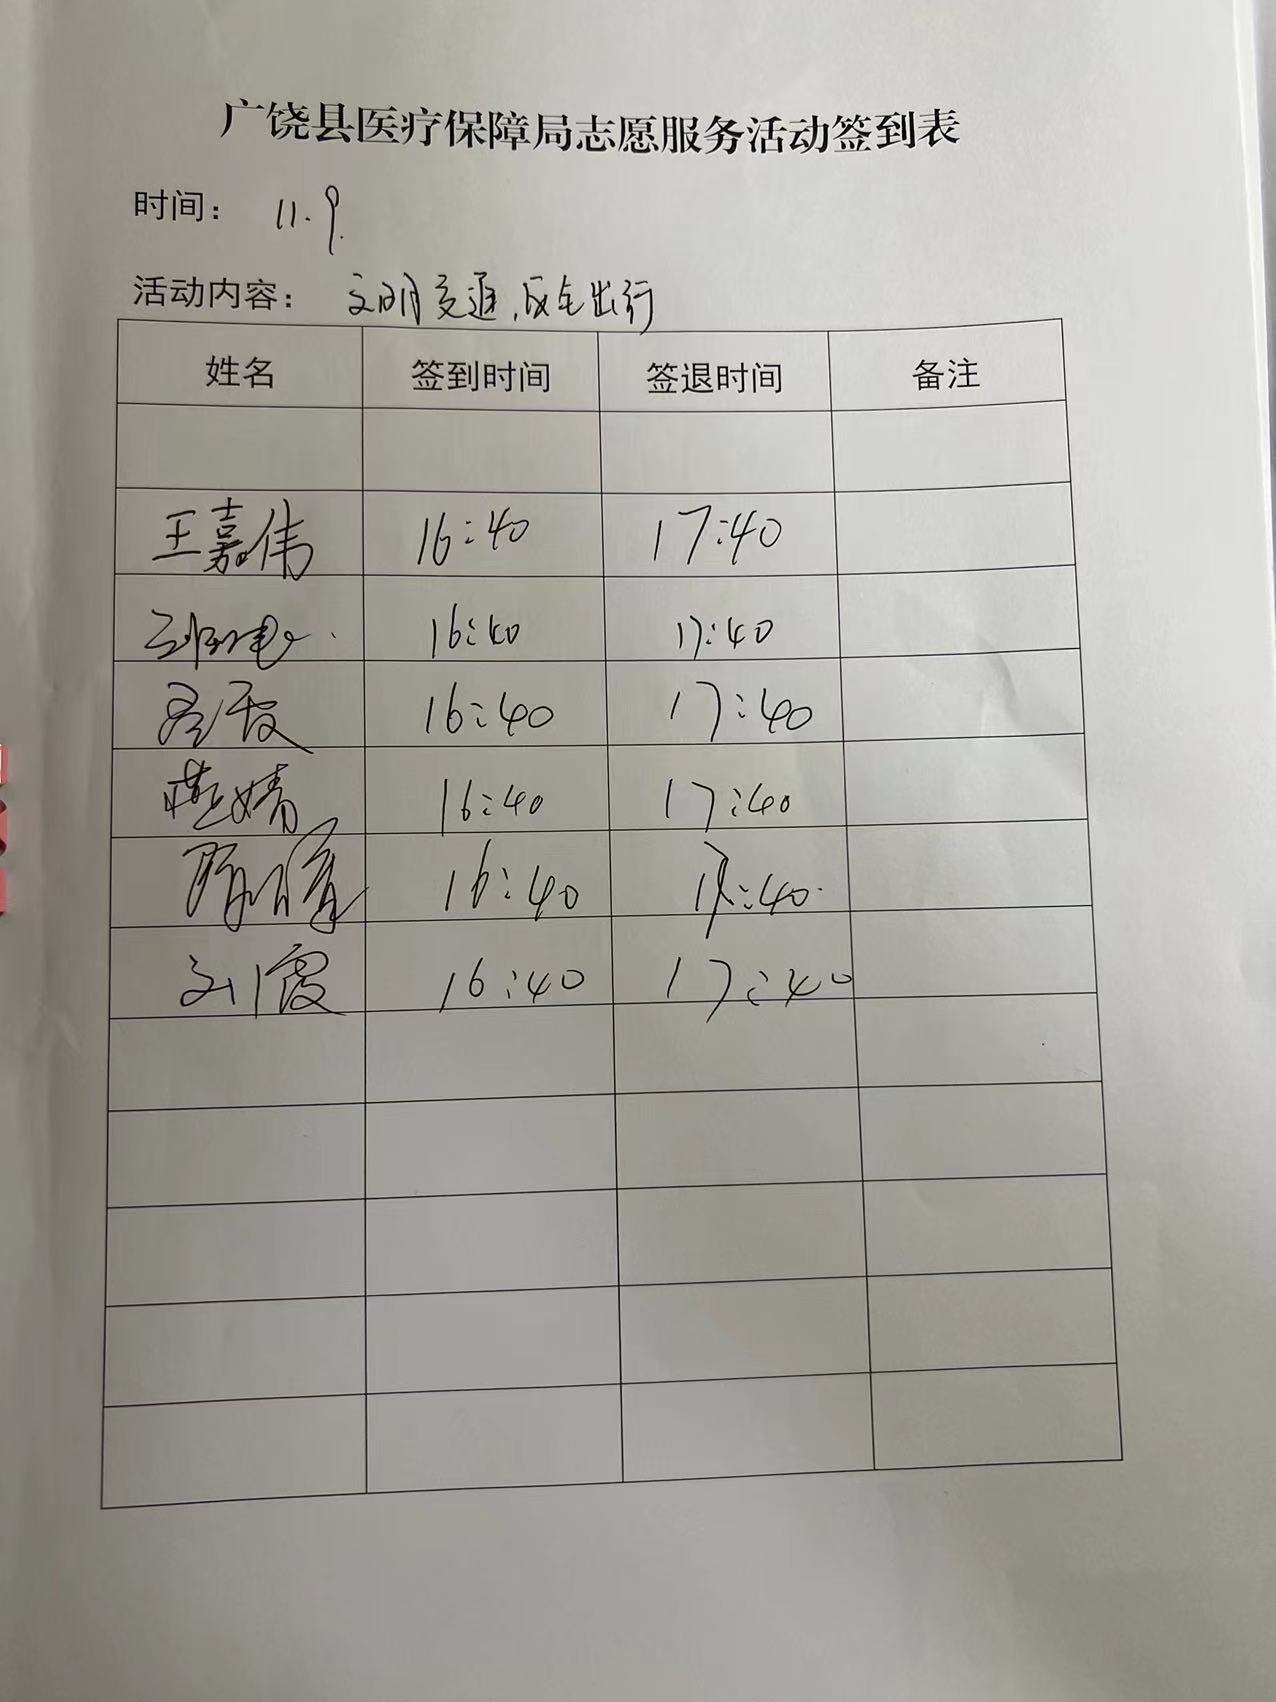 广饶县医疗保障局志愿服务活动签到表
时间： 11.9.
活动内容： 文明交通,安全出行
姓名 签到时间 签退时间 备注
王嘉伟 16:40 17:40
16:40 17:40
16:40 17:40
婧 16:40 17:40
16:40 17:40
刘霞 16:40 17:40